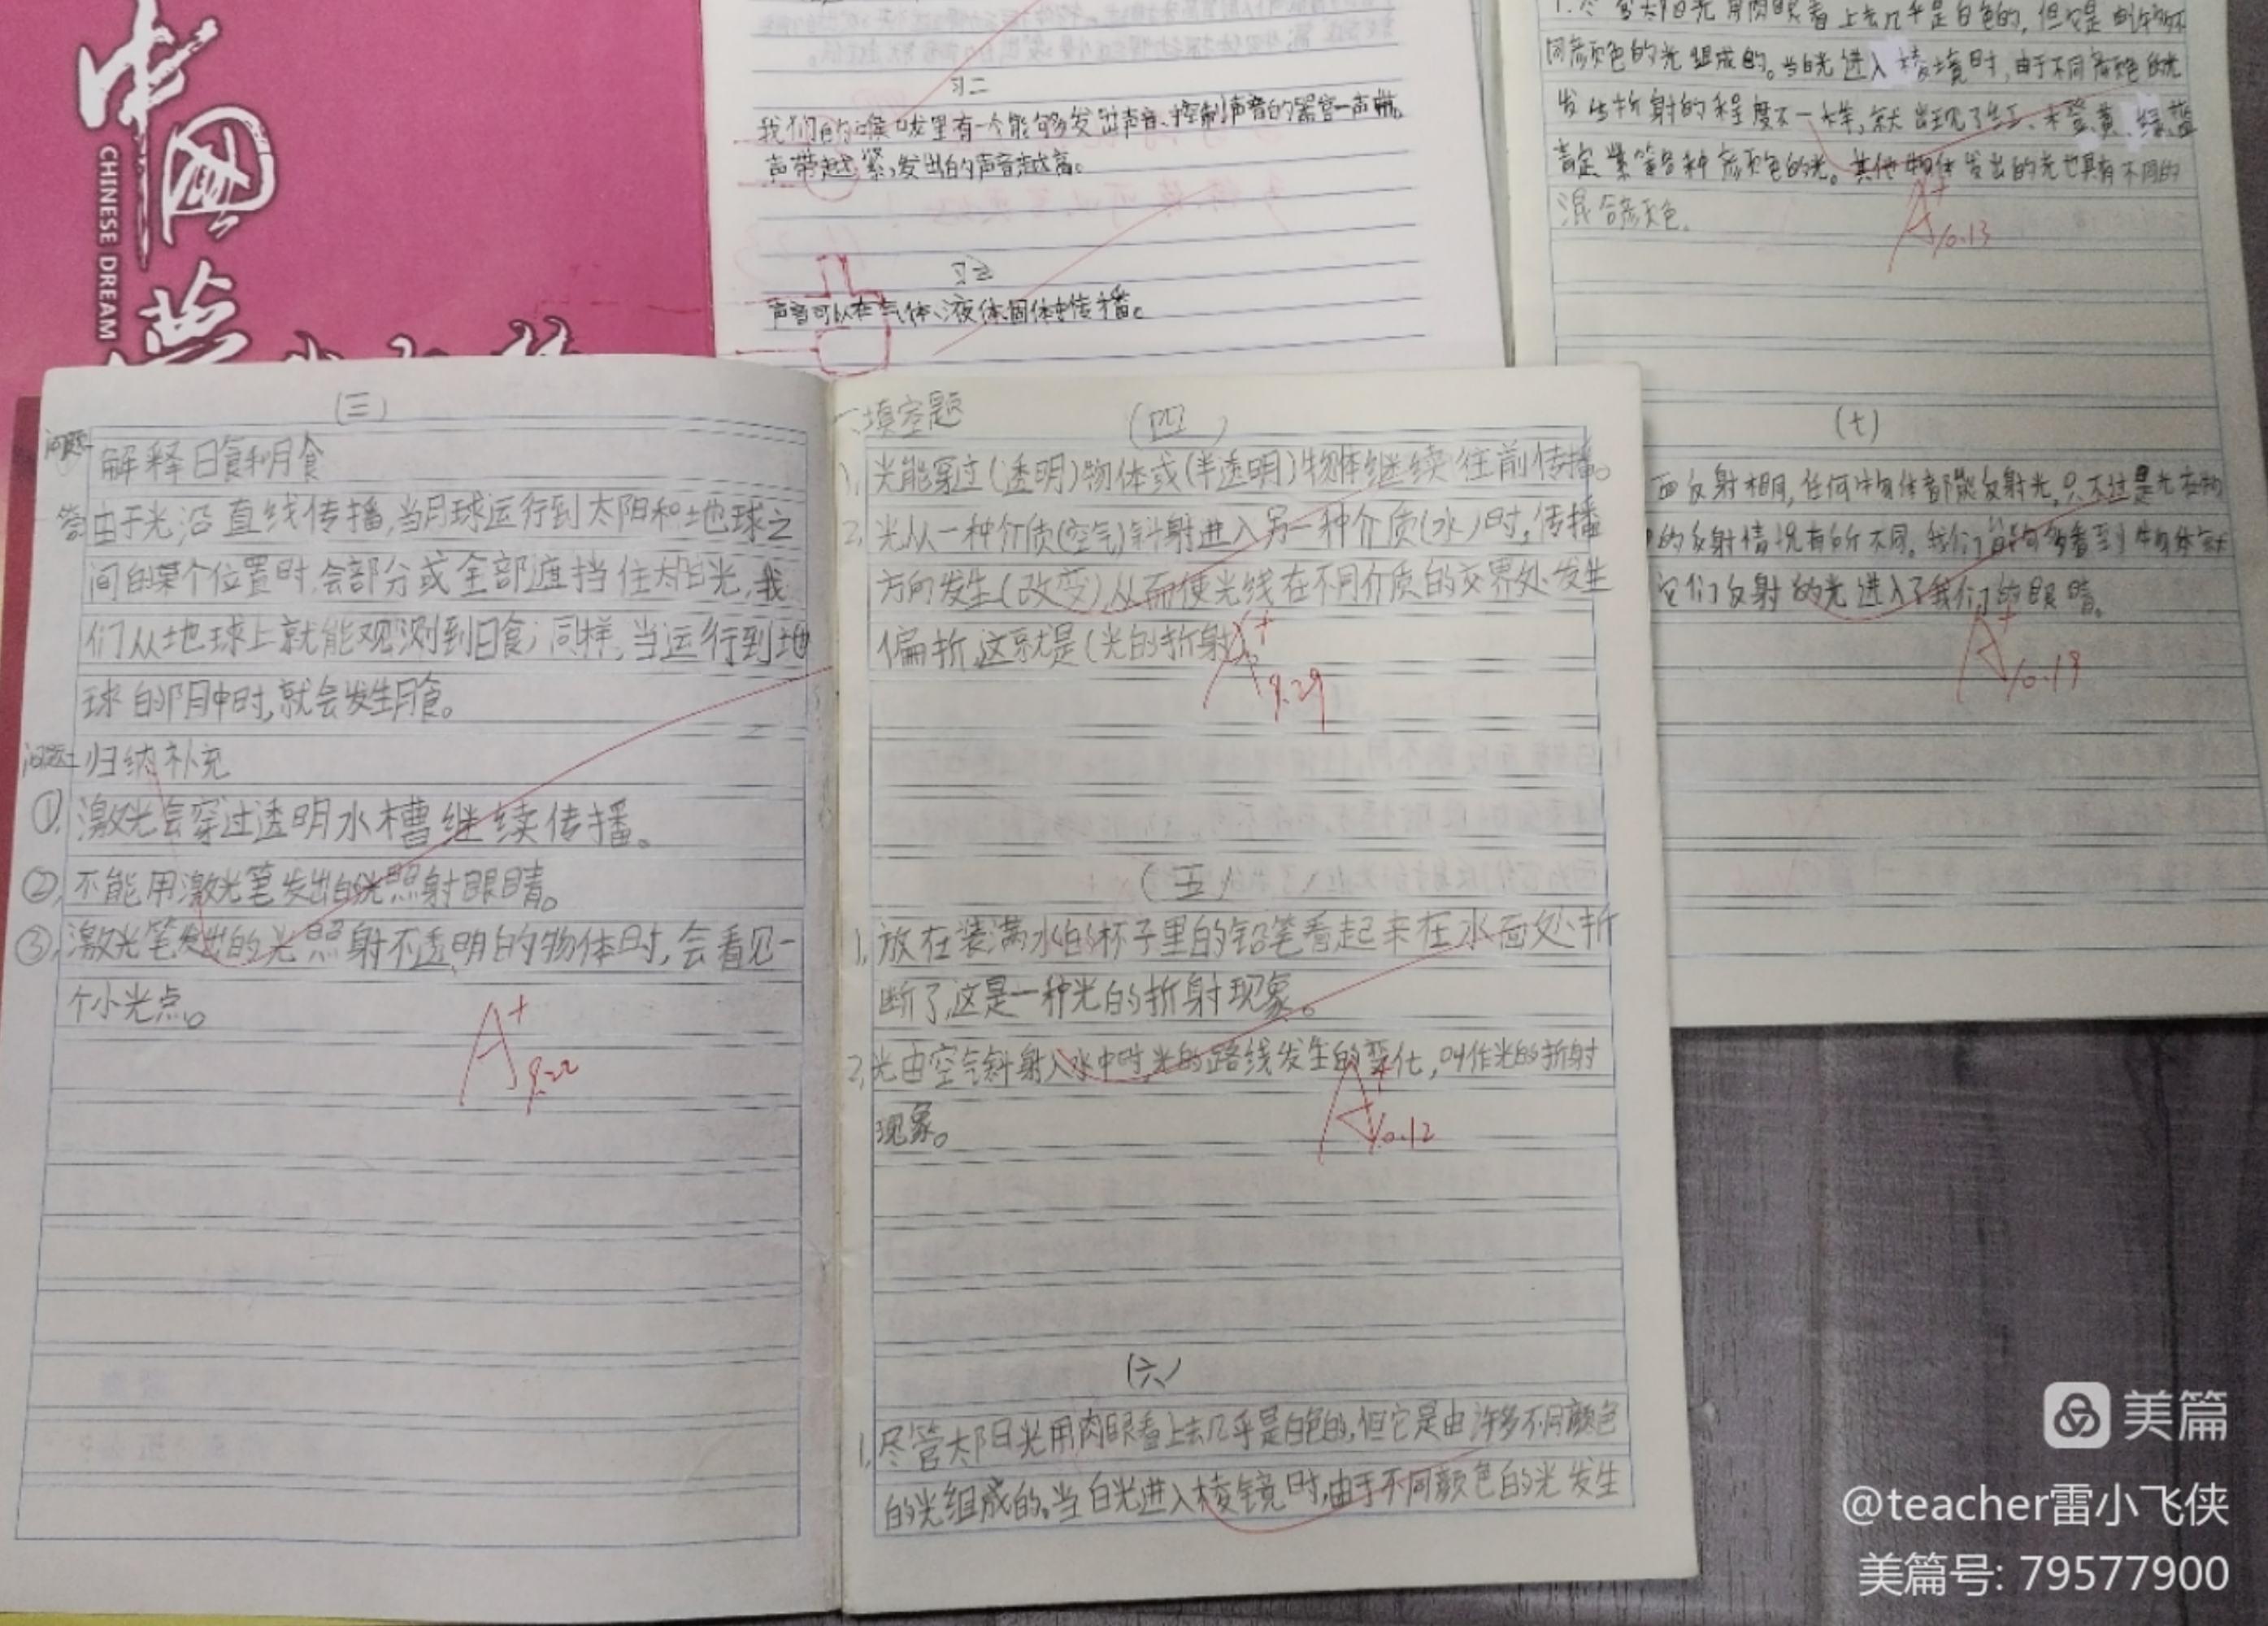 中国梦
CHINESE DREAM
习二
我们的喉咙里有一个能够发出声音、控制声音的器官一声带,
声带越紧,发出的声音越高。
习三
声音可以在气体、液体、固体中传播。
1.尽管太阳光用肉眼看上去几乎是白色的,但它是由许多不
同颜色的光组成的。当白光进入棱境时,由于不同颜色的光
发生折射的程度不一样,就出现了红、橙、黄、绿、蓝、
靛、紫等各种颜色的光。其他物体发出的光也具有不同的
混合颜色。
A+
10.13
(七)
面反射相同,任何物体都能反射光,只不过是光在物
的反射情况有所不同。我们能够看到物体就
它们反射的光进入了我们的眼睛。
A+
10.19
(三)
问题一
解释日食和月食
答:由于光沿直线传播,当月球运行到太阳和地球之
间的某个位置时,会部分或全部遮挡住太阳光,我
们从地球上就能观测到日食;同样,当运行到地
球的阴中时,就会发生月食。
问题二 归纳补充
①,激光会穿过透明水槽继续传播。
②,不能用激光笔发出的光照射眼睛。
③,激光笔发出的光照射不透明的物体时,会看见一
个小光点。
A+
9.22
一、填空题
(四)
1、光能穿过(透明)物体或(半透明)物体继续往前传播。
2、光从一种介质(空气)斜射进入另一种介质(水)时,传播
方向发生(改变),从而使光线在不同介质的交界处发生
偏折,这就是(光的折射)。
A+
9.29
(五)
1、放在装满水的杯子里的铅笔看起来在水面处折
断了,这是一种光的折射现象。
2、光由空气斜射入水中时,光的路线发生的变化,叫作光的折射
现象。
A+
10.12
(六)
1、尽管太阳光用肉眼看上去几乎是白色的,但它是由许多不同颜色
的光组成的。当白光进入棱镜时,由于不同颜色的光发生
美篇
@teacher雷小飞侠
美篇号: 79577900